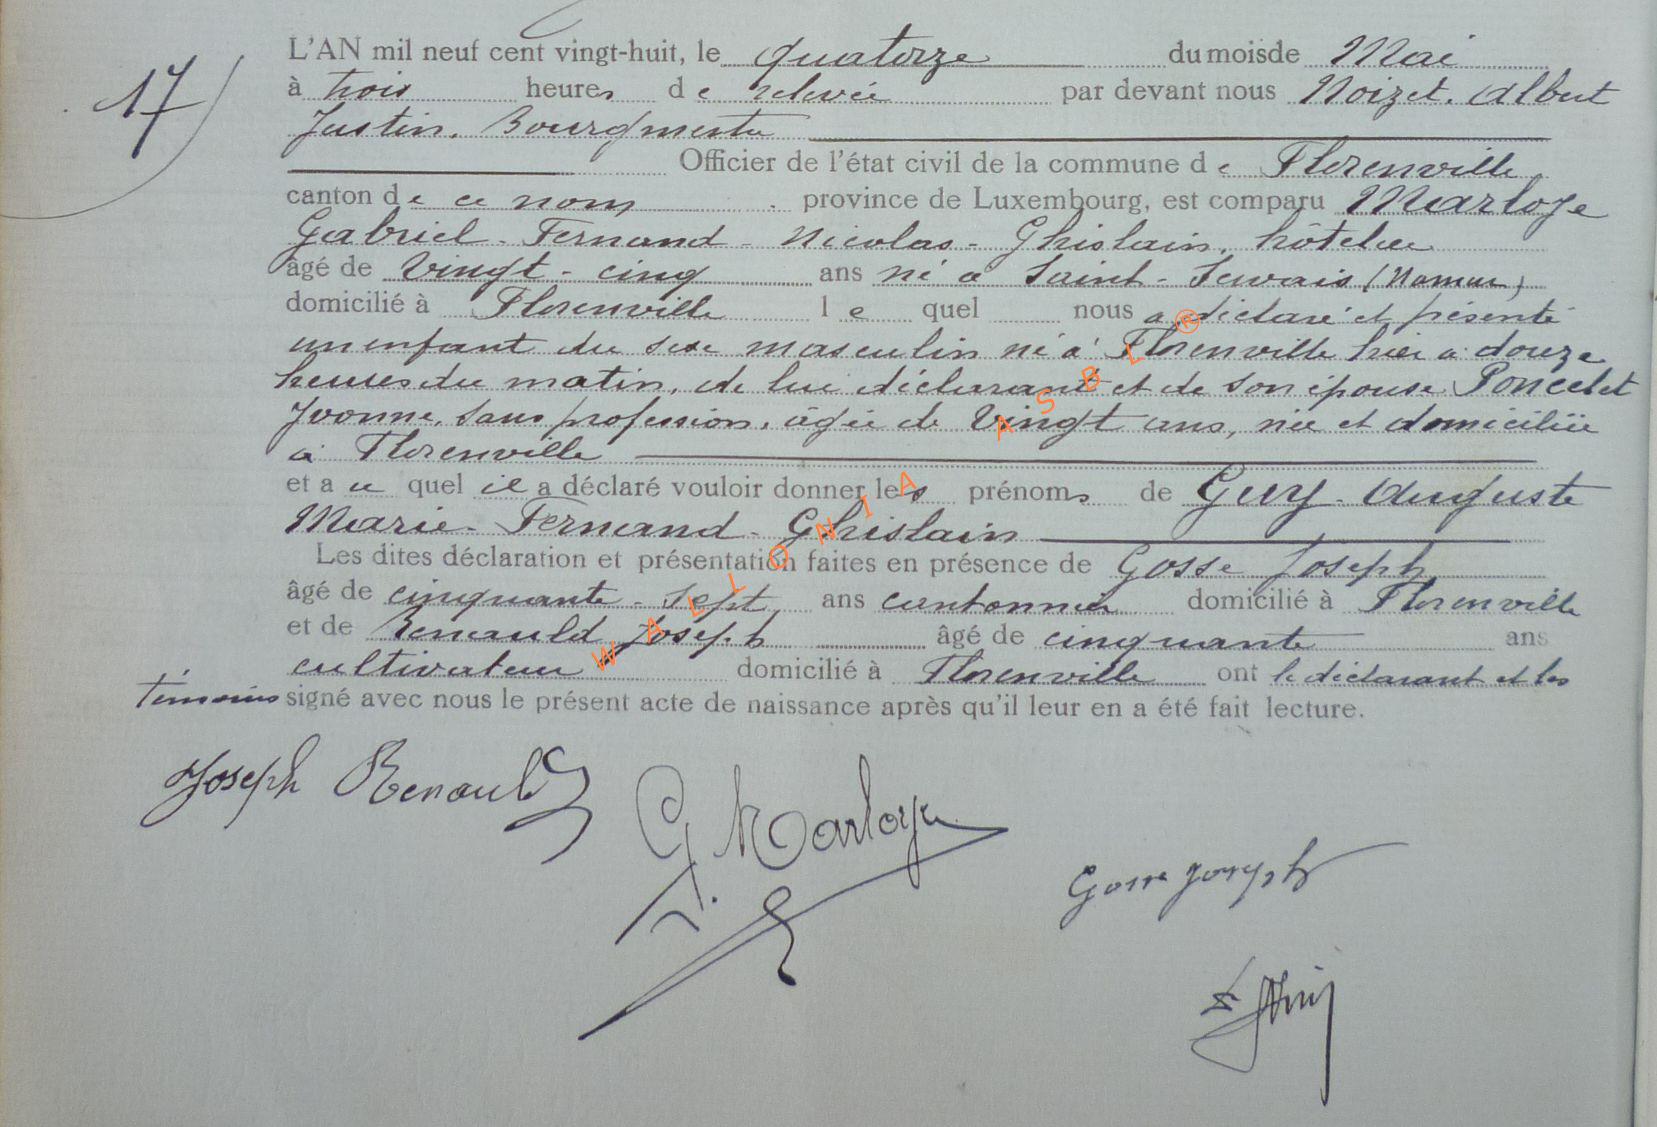 17
L'AN mil neuf cent vingt-huit, le quatorze du mois de Mai
à trois heures de relevée par devant nous Noizet. Albert
Justin. Bourgmestre
Officier de l'état civil de la commune de Florenville
canton de ce nom province de Luxembourg, est comparu Marloye
Gabriel - Fernand - Nicolas - Ghislain, hôtelier
âgé de Vingt - cinq ans né à Saint - Servais (Namur)
domicilié à Florenville lequel nous a déclaré et présenté
un enfant du sexe masculin né à Florenville hier à douze
heures du matin, de lui déclarant et de son épouse Poncelet
Yvonne, sans profession, âgée de Vingt ans, née et domiciliée
à Florenville
et auquel il a déclaré vouloir donner les prénoms de Guy - Auguste
Marie - Fernand - Ghislain
Les dites déclaration et présentation faites en présence de Gosse Joseph
âgé de cinquante - sept ans cantonnier domicilié à Florenville
et de Renauld Joseph âgé de cinquante ans
cultivateur domicilié à Florenville ont le déclarant et les
témoins signé avec nous le présent acte de naissance après qu'il leur en a été fait lecture.
Joseph Renauld
G. Marloye
Gosse Joseph
WALLONIA ASBL ®